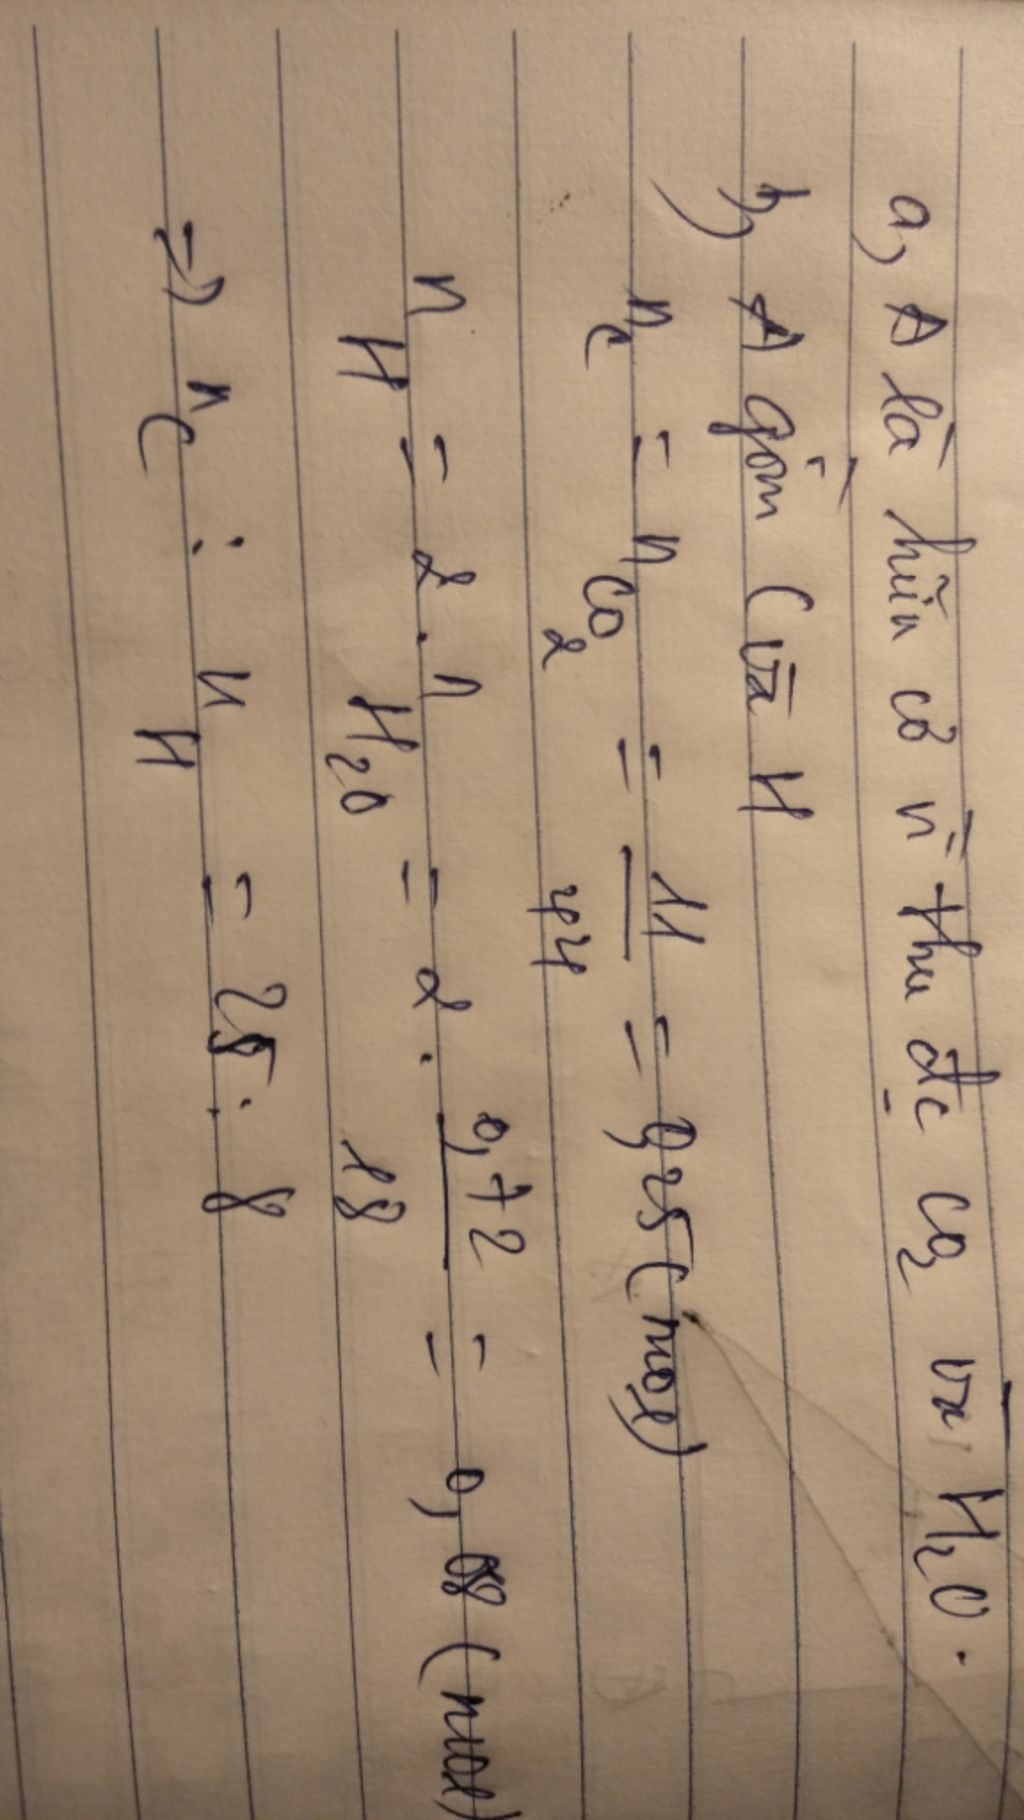 a, A là hữu cơ vì thu đc CO2 và H2O.
b, A gồm C và H
nC = nCO2 = 11/44 = 0,25 (mol)
nH = 2 . nH2O = 2 . 0,72/18 = 0,08 (mol)
=> nC : nH = 25 : 8